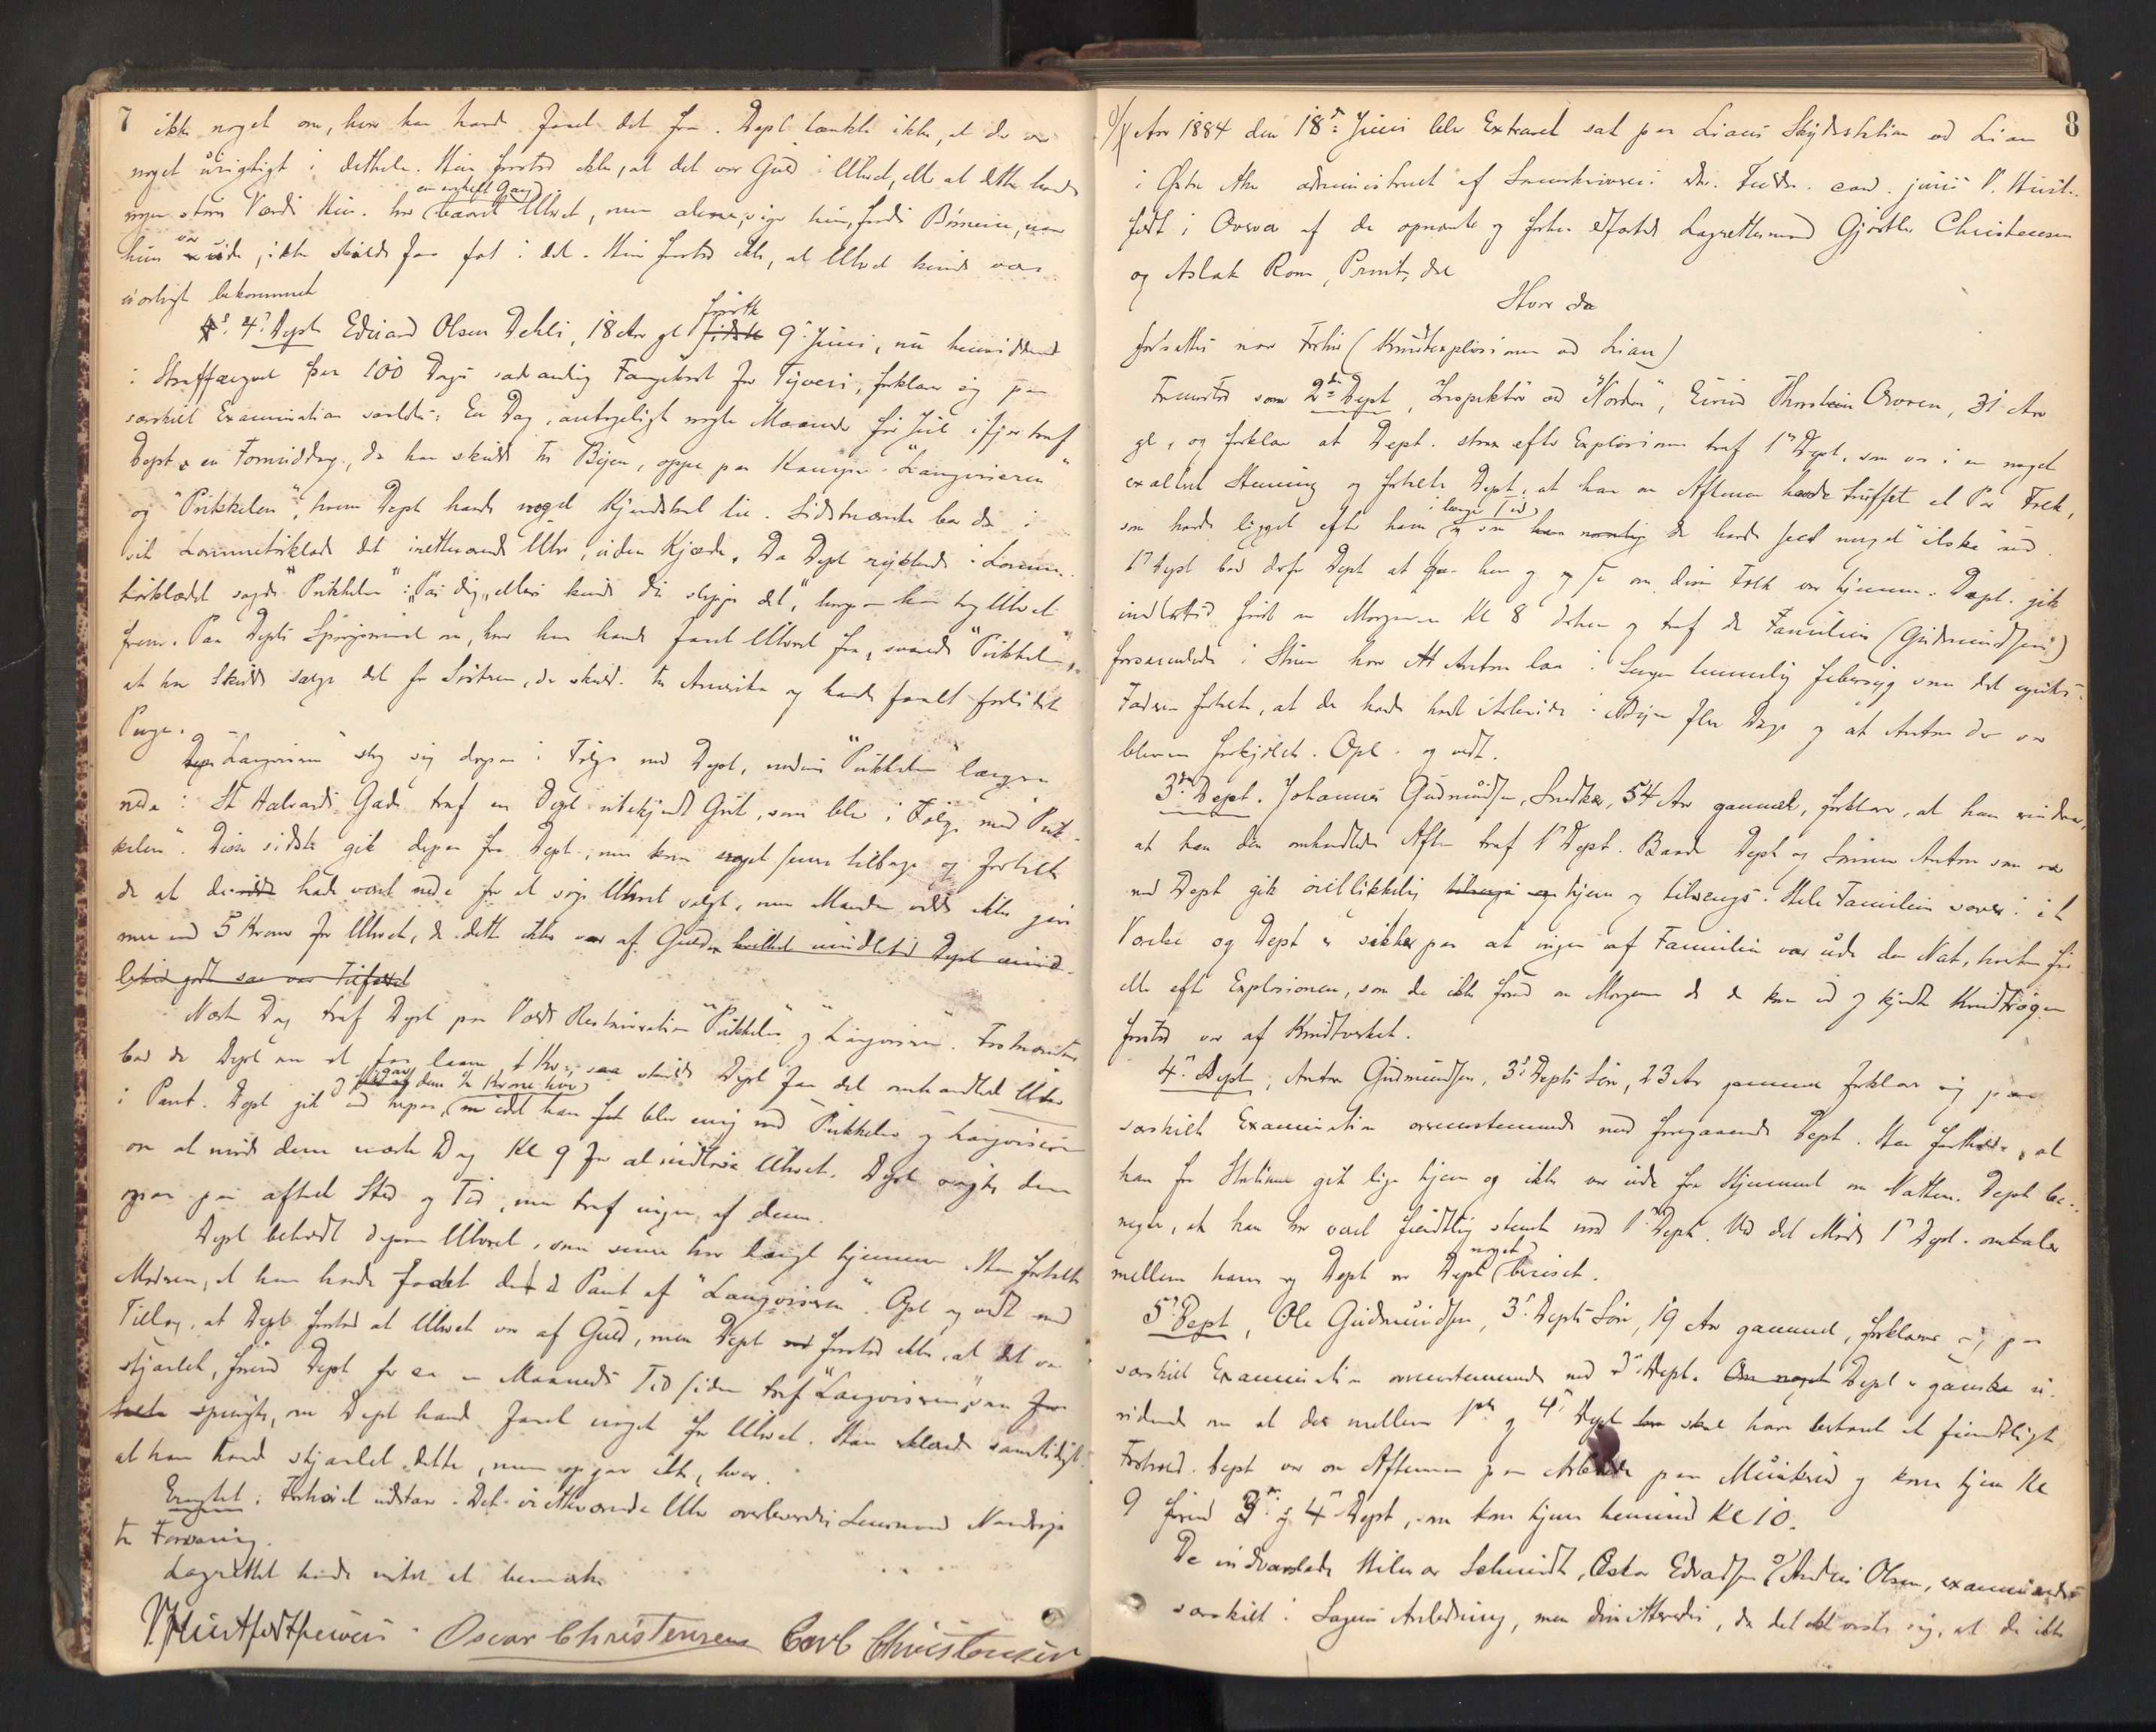 7
ikke noget om, hvor han havde faaet det fra. Dept. tænkte ikke, at der var
noget urigtigt i dethele. Hun forstod ikke, at det var Guld i Uhret, eller at dette havde
nogen større Værdi. Hun har baaret en enkelt Gang Uhret, men alene, siger hun, fordi Børnene, naar
hun var ude, ikke skulde faa fat i det. Hun forstod ikke, at Uhret kunde være
uærligt bekommet
4. Dept. Edvard Olsen Dehli, 18 Aar gl. fyldte 9. Juni, nu hensiddende
i Strafarrest paa 100 Dages sædvanlig Fangekost for Tyveri, forklarer sig paa
særskilt Examination saaledes: En Dag, antageligt nogle Maaneder før Jul ifjor traf
Dept. en Formiddag, da han skulde til Byen, oppe paa Kampen "Langviseren"
og "Prikkelen", hvem Dept. havde noget Kjendskab til. Sidstnævnte bar da i
sit Lommetørklæde det iretteværende Uhr, uden Kjæde. Da Dept. rykkede i Lomme-
tørklædet sagde "Prikkelen": "Pas dig, ellers kunde du slippe det", hvorpaa han tog Uhret
frem. Paa Depts Spørgsmaal om, hvor han havde faaet Uhret fra, svarede "Prikkelen",
at han skulde sælge det for Søsteren, der skulde til Amerika og havde faaet forlidet
Penge.
"Langviseren" slog sig derpaa i Følge med Dept., medens "Prikkelen" længere
nede i St. Halvards Gade traf en Dept. ubekjendt Gut, som blev i Følge med "Prik-
kelen". Disse sidste gik derpaa fra Dept., men kom noget senere tilbage og fortalte
da at de havde været nede for at søge Uhret solgt, men Manden vilde ikke give
mer end 5 Kroner for Uhret, da dette ikke var af Guld, hvilket imidlertid Dept. imid-
lertid godt saa var Tilfældet
Næste Dag traf Dept. paa Restauration "Prikkelen" og "Langviseren". Førstnævnte
bad da Dept. om at faa laane 1 Kr., saa skulde Dept. faa det omhandlede Uhr
i Pant. Dept. gik ind herpaa, og gav dem ½ Krone hver idet han først blev enig med "Prikkelen" og Langviseren
om at møde dem næste Dag Kl 9 for at indløse Uhret. Dept. søgte dem
ogsaa paa aftalt Sted og Tid, men traf ingen af dem.
Dept. beholdt derpaa Uhret, som siden har ligget hjemme. Han fortalte
Moderen, at han havde faaet det i Pant af "Langviseren". Opl. og vedt. med
Tillæg, at Dept. forstod at Uhret var af Guld, men Dept. forstod ikke, at det var
stjaalet, førend Dept. for en Maaneds Tid siden traf "Langviseren", som
spurgte, om Dept. havde faaet noget for Uhret. Han erklærede samtidigt,
at han havde stjaalet dette, men opgav ikke, hvor.
Eragtet: Forhøret udstaar. Det iretteværende Uhr overleveredes Lensmand
til Forvaring.
Lagrettet havde intet at bemærke
Oscar Christensen Carl Christensen
8
Aar 1884 den 18de Juni blev Extraret sat paa Lians Skydsstation ved Lian
i Østre Aker administreret af Sorenskriverens edsv. Fuldm. cand. juris V. Huit-
feldt i Overvær af de opnævnte og forhen edfæstede Lagrettesmænd Gjørtler Christensen
og Aslak Rom,
Hvor da
fortsattes næv. Forhør (Krudtexplosionen ved Lian)
Fremstod som 2det Dept., Inspektør ved "Norden", Eivind Thorstein Overen, 31 Aar
gl., og forklarer at Dept. strax efter Explosionen traf 1ste Dept., som var i en noget
exalteret Stemning og fortalte Dept., at han om Aftenen havde truffet et Par Folk,
som havde ligget efter ham i længre Tid og som de havde seet meget "ilske" ud.
1ste Dept. bad derfor Dept. at gaa hen og se om disse Folk var hjemme. Dept. gik
imidlertid først om Morgenen Kl 8 derhen og traf da Familien (Gudmundsens)
forsamlede i Stuen hvor Anton laa i Sengen temmelig febersyg som det syntes.
Faderen fortalte, at de havde havt Arbeide i Byen flere Dage og at Anton der var
bleven forkjølet. Opl. og vedt.
3die Dept. Johannes Gudmundsen, Snedker, 54 Aar gammel, forklarer, at han erindrer,
at han den omhandlede Aften traf 1ste Dept. Baade Dept. og Sønnen Anton som var
med Dept. gik øieblikkelig tilsengs og hjem og tilsengs. Hele Familien sover i et
Værelse og Dept. er sikker paa at ingen af Familien var ude den Nat, hverken før
eller efter Explosionen, som de ikke førend om Morgenen da de kom ud og kjendte Krudtrøgen
forstod var af Krudtverket.
4. Dept., Anton Gudmundsen, 3. Depts Søn, 23 Aar gammel forklarer sig paa
særskilt Examination overensstemmende med foregaaende Dept. Han fastholder, at
han fra Stationen gik lige hjem og ikke var ude fra Hjemmet om Natten. Dept. be-
nægter, at han har været fiendtlig stemt mod 1ste Dept. Ved det Møde 1ste Dept. omtaler
mellem ham og Dept. var Dept. noget beruset.
5. Dept., Ole Gudmundsen, 3. Depts Søn, 19 Aar gammel, forklarer sig paa
særskilt Examination overensstemmende med 3. Dept. Om noget Dept. er ganske u-
vidende om at der mellem 1ste og 4de Dept. skal have bestaaet et fiendtligt
Forhold. Dept. var om Aftenen paa Arbeide paa Munkerud og kom hjem Kl
9 førend 3die og 4de Dept., som kom hjem henimod Kl 10.
De indvarslede Hilmar Schmidt, Oskar Edvardsen og Anders Olsen, examineredes
særskilt i Sagens Anledning, men dimitteredes, da det viste sig, at de ikke